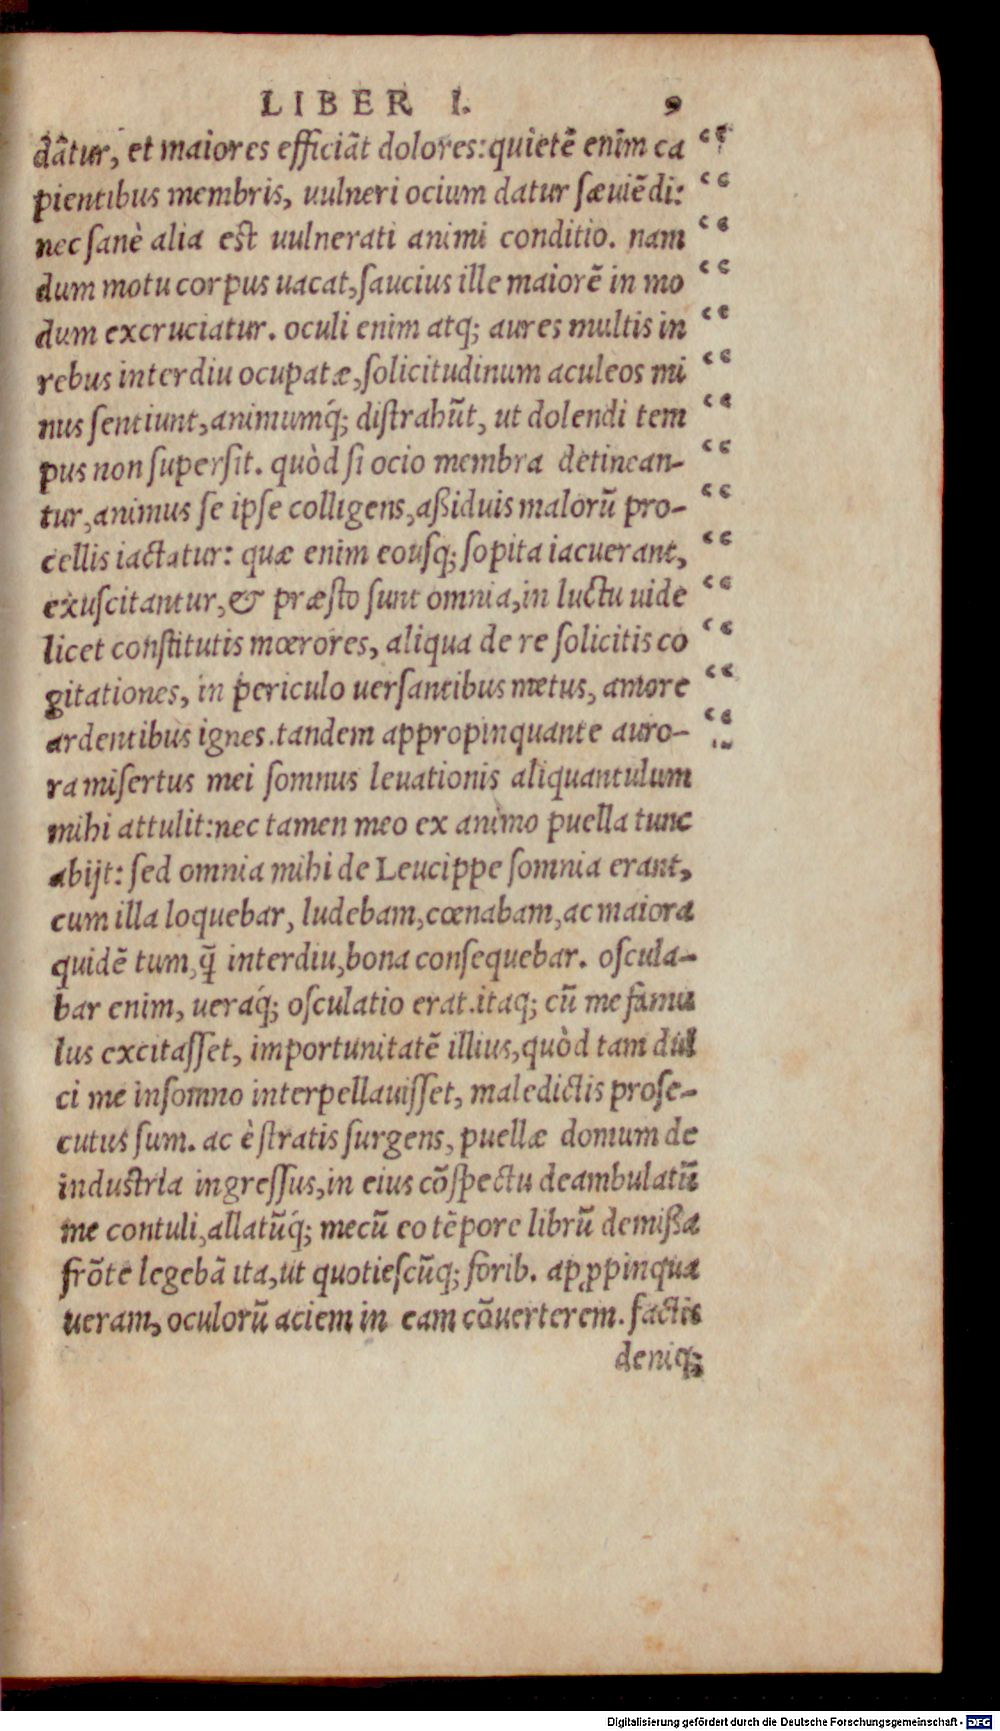 LIBER I. 9
dãtur, et maiores efficiãt dolores: quietẽ enim ca “
pientibus membris, uulneri ocium datur sæuiẽdi: “
nec sanè alia est uulnerati animi conditio. nam “
dum motu corpus uacat, saucius ille maiorẽ in mo “
dum excruciatur. oculi enim atq; aures multis in “
rebus interdiu ocupatæ, solicitudinum aculeos mi “
nus sentiunt, animumq́; distrahũt, ut dolendi tem “
pus non supersit. quòd si ocio membra detinean- “
tur, animus se ipse colligens, aßiduis malorũ pro- “
cellis iactatur: quæ enim eousq; sopita iacuerant, “
exuscitantur, & præsto sunt omnia, in luctu uide “
licet constitutis mœrores, aliqua de re solicitis co “
gitationes, in periculo uersantibus metus, amore “
ardentibus ignes. tandem appropinquante auro- “
ra misertus mei somnus leuationis aliquantulum
mihi attulit: nec tamen meo ex animo puella tunc
abijt: sed omnia mihi de Leucippe somnia erant,
cum illa loquebar, ludebam, cœnabam, ac maiora
quidẽ tum, q̃ interdiu, bona consequebar. oscula-
bar enim, ueraq́; osculatio erat. itaq; cũ me famu
lus excitasset, importunitatẽ illius, quòd tam dul
ci me insomno interpellauisset, maledictis prose-
cutus sum. ac è stratis surgens, puellæ domum de
industria ingressus, in eius cõspectu deambulatũ
me contuli, allatũq́; mecũ eo tẽpore librũ demißa
frõte legebã ita, ut quotiescũq; forib. apꝓpinqua
ueram, oculorũ aciem in eam cõuerterem. factis
deniq;
Digitalisierung gefördert durch die Deutsche Forschungsgemeinschaft - DFG